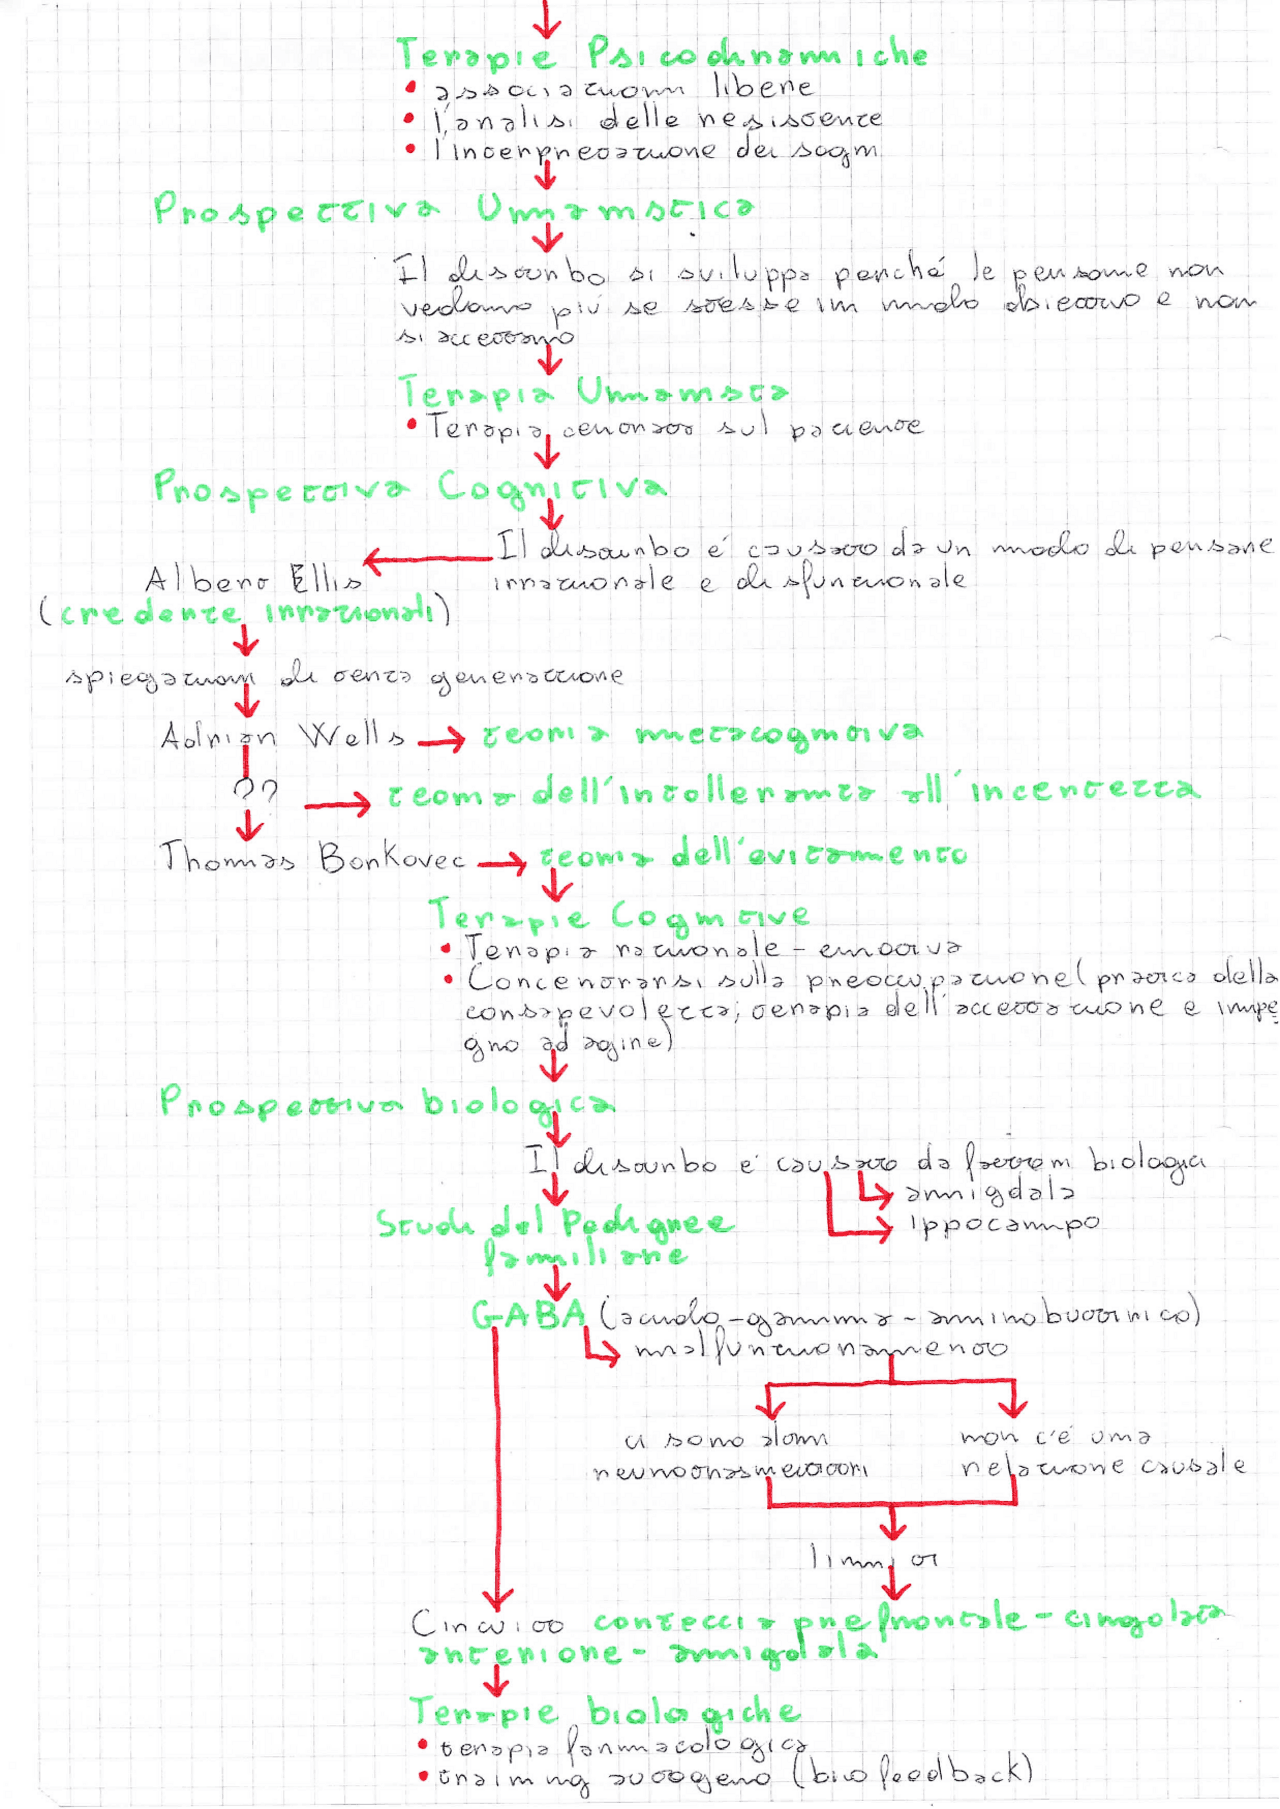 Terapie Psicodinamiche
• associazioni libere
• l'analisi delle resistenze
• l'interpretazione dei sogni
Prospettiva Umanistica
Il disturbo si sviluppa perché le persone non
vedono più se stesse in modo obiettivo e non
si accettano
Terapia Umanista
• Terapia centrata sul paziente
Prospettiva Cognitiva
Il disturbo é causato da un modo di pensare
irrazionale e disfunzionale
Albert Ellis
(credenze irrazionali)
spiegazioni di terza generazione
Adrian Wells → teoria metacognitiva
?? → teoria dell'intolleranza all'incertezza
Thomas Borkovec → teoria dell'evitamento
Terapie Cognitive
• Terapia razionale-emotiva
• Concentrarsi sulla preoccupazione (pratica della
consapevolezza; terapia dell'accettazione e impe
gno ad agire)
Prospettiva biologica
Il disturbo é causato da fattori biologici
amigdala
ippocampo
Studi del Pedigree
familiare
GABA (acido-gamma-amminobutirrico)
malfunzionamento
ci sono alcuni
neurotrasmettitori
non c'é una
relazione causale
limiti
Circuito corteccia prefrontale-cingolata
anteriore-amigdala
Terapie biologiche
• terapia farmacologica
• training autogeno (biofeedback)